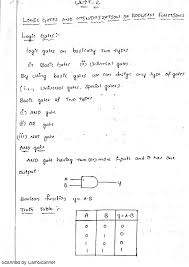 UNIT-2
LOGIC GATES AND MINIMIZATION OF BOOLEAN FUNCTIONS
Logic Gates:-
Logic gates are basically two types
(i) Basic Gates (ii) Universal Gates
By using basic gates we can design any type of gates
(i.e., Universal gates, Special gates).
Basic gates of two types
(i) AND gate
(ii) OR gate
(iii) NOT gate
AND gate
AND gate having two (or) more inputs and it has one
output.
A
B
y
Boolean function y = A·B
Truth Table:-
A B y=A·B
0 0 0
0 1 0
1 0 0
1 1 1
Scanned by CamScanner